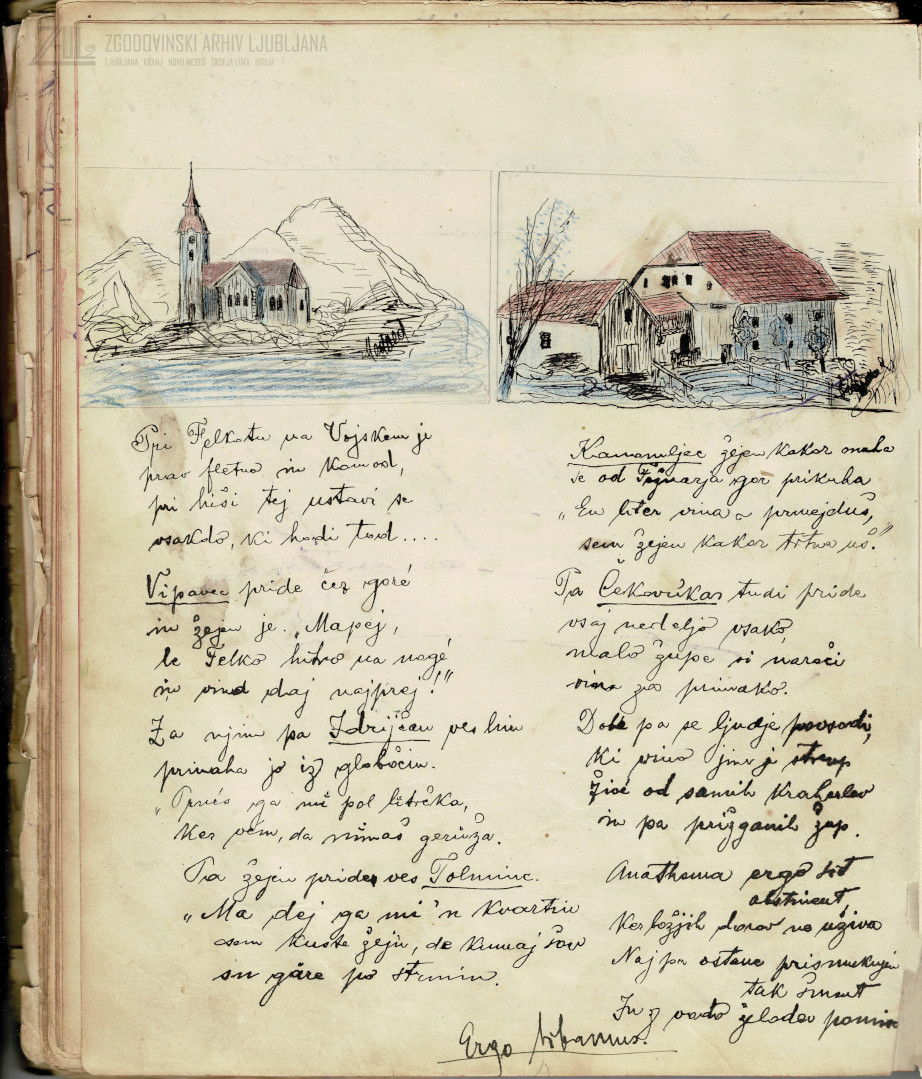 ZGODOVINSKI ARHIV LJUBLJANA
LJUBLJANA KRANJ NOVO MESTO ŠKOFJA LOKA IDRIJA
Pri Felkatu na Vojskem je
prav fletno in komod,
pri hiši tej ustavi se
vsakdo, ki hodi tod....
Vipavec pride čez goré
in žejen je. "Mapej,
le Felko hitro na nogé
in vina daj najprej!"
Za njim pa Idrijčan ves
primaha jo iz globočin.
"Prnes ga mi pol litrčka,
ker vem, da nimaš geruža.
Pa žejen pride ves Tolminc.
"Ma dej ga mi 'n kvartin
sem kuste žejn, de kumaj
sn gäre po štemin.
Kanomljec žejen kakor
se od gor prikuha
"En liter vina
sem žejen kakor trtna uš."
Pa Čekovnkar tudi pride
vsaj nedeljo vsako,
malo župe si naroči
vina za primako.
Dobe pa se ljudje povsodi,
ki vino jim je strup
žive od samih kraherlov
in pa prižganih žup.
Anathema ergo sit
abstinent,
Ker božjih darov ne uživa
Naj pa ostane
tak
In z vodo želodec
Ergo bibamus.